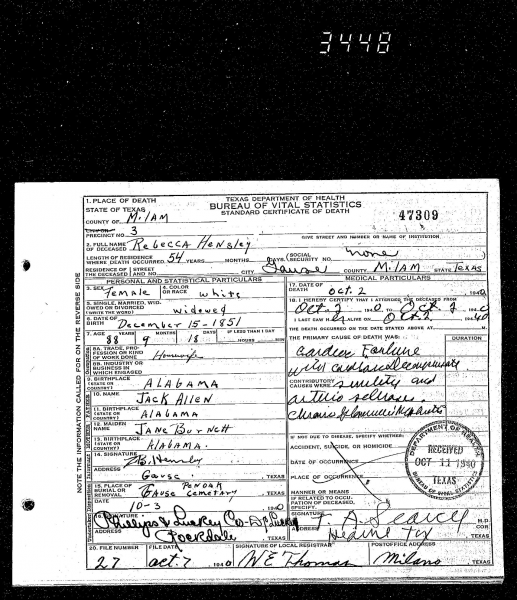 3448
TEXAS DEPARTMENT OF HEALTH
BUREAU OF VITAL STATISTICS
STANDARD CERTIFICATE OF DEATH
47309
1. PLACE OF DEATH
STATE OF TEXAS
COUNTY OF MILAM
PRECINCT NO. 3
GIVE STREET AND NUMBER OR NAME OF INSTITUTION
2. FULL NAME OF DECEASED Rebecca Hensley
LENGTH OF RESIDENCE WHERE DEATH OCCURRED 54 YEARS MONTHS DAYS SOCIAL SECURITY NO. none
RESIDENCE OF THE DECEASED STREET AND NO. CITY Gause COUNTY MILAM STATE TEXAS
PERSONAL AND STATISTICAL PARTICULARS
3. SEX Female 4. COLOR OR RACE white
5. SINGLE, MARRIED, WIDOWED OR DIVORCED (WRITE THE WORD) widowed
6. DATE OF BIRTH December 15-1851
7. AGE YEARS MONTHS DAYS IF LESS THAN 1 DAY
88 9 18 HOURS MIN
8A. TRADE, PROFESSION OR KIND OF WORK DONE Housewife
8B. INDUSTRY OR BUSINESS IN WHICH ENGAGED
9. BIRTHPLACE (STATE OR COUNTRY) ALABAMA
10. NAME JACK Allen
11. BIRTHPLACE (STATE OR COUNTRY) ALABAMA
12. MAIDEN NAME JANE Burnett
13. BIRTHPLACE (STATE OR COUNTRY) ALABAMA.
14. SIGNATURE
ADDRESS Gause, TEXAS
15. PLACE OF BURIAL OR REMOVAL PONOAK
Gause cemetary TEXAS
10-3 1940
16. SIGNATURE Phillips & Luckey Co
ADDRESS Rockdale TEXAS
MEDICAL PARTICULARS
17. DATE OF DEATH Oct. 2 1940
18. I HEREBY CERTIFY THAT I ATTENDED THE DECEASED FROM
Oct 2 1940 TO Oct 2 1940
I LAST SAW HER ALIVE ON Oct 2 1940
THE DEATH OCCURRED ON THE DATE STATED ABOVE AT M.
THE PRIMARY CAUSE OF DEATH WAS: DURATION
Cardiac Failure
CONTRIBUTORY CAUSES WERE senility and
arterio sclerosis
IF NOT DUE TO DISEASE, SPECIFY WHETHER:
ACCIDENT, SUICIDE, OR HOMICIDE
DATE OF OCCURRENCE
PLACE OF OCCURRENCE
MANNER OR MEANS
IF RELATED TO OCCUPATION OF DECEASED, SPECIFY
DEPARTMENT OF HEALTH
RECEIVED
OCT 11 1940
TEXAS
BUREAU OF VITAL STATISTICS
SIGNATURE M.D.
ADDRESS Hearne Tex TEXAS
20. FILE NUMBER FILE DATE SIGNATURE OF LOCAL REGISTRAR POSTOFFICE ADDRESS
27 Oct. 7 1940 W E Thomas Milano TEXAS
NOTE THE INFORMATION CALLED FOR ON THE REVERSE SIDE